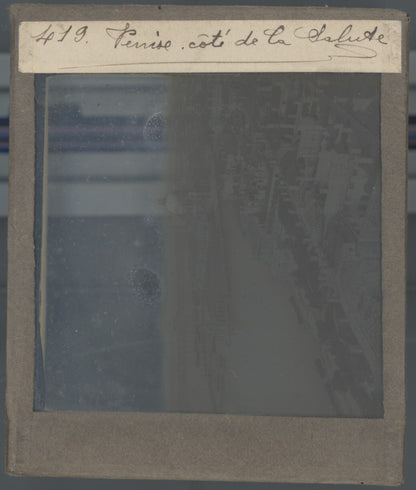 419. Venise. côté de la Salute